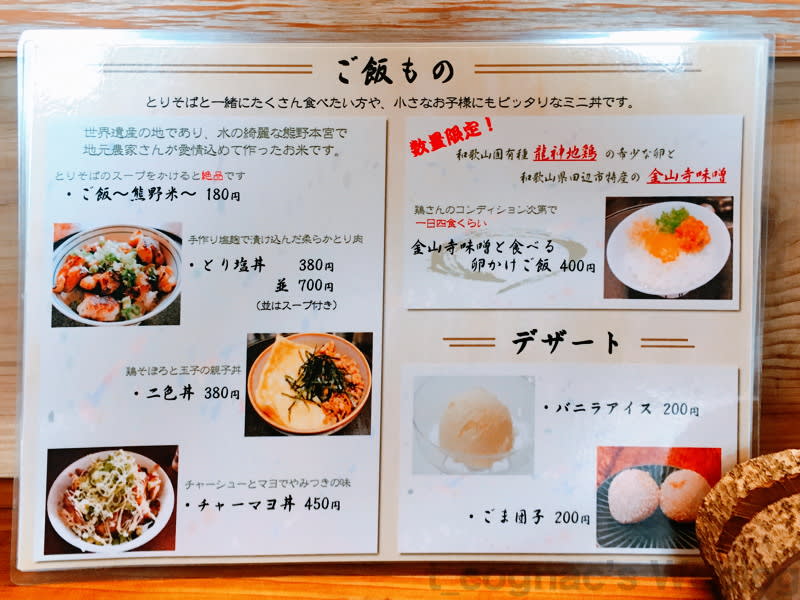 ご飯もの
とりそばと一緒にたくさん食べたい方や、小さなお子様にもピッタリなミニ丼です。
世界遺産の地であり、水の綺麗な熊野本宮で
地元農家さんが愛情込めて作ったお米です。
とりそばのスープをかけると絶品です
・ご飯〜熊野米〜 180円
手作り塩麹で漬け込んだ柔らかとり肉
・とり塩丼 380円
並 700円
（並はスープ付き）
鶏そぼろと玉子の親子丼
・二色丼 380円
チャーシューとマヨでやみつきの味
・チャーマヨ丼 450円
数量限定！
和歌山固有種 龍神地鶏 の希少な卵と
和歌山県田辺市特産の 金山寺味噌
鶏さんのコンディション次第で
一日四食くらい
金山寺味噌と食べる
卵かけご飯 400円
デザート
・バニラアイス 200円
・ごま団子 200円
t_cognac's